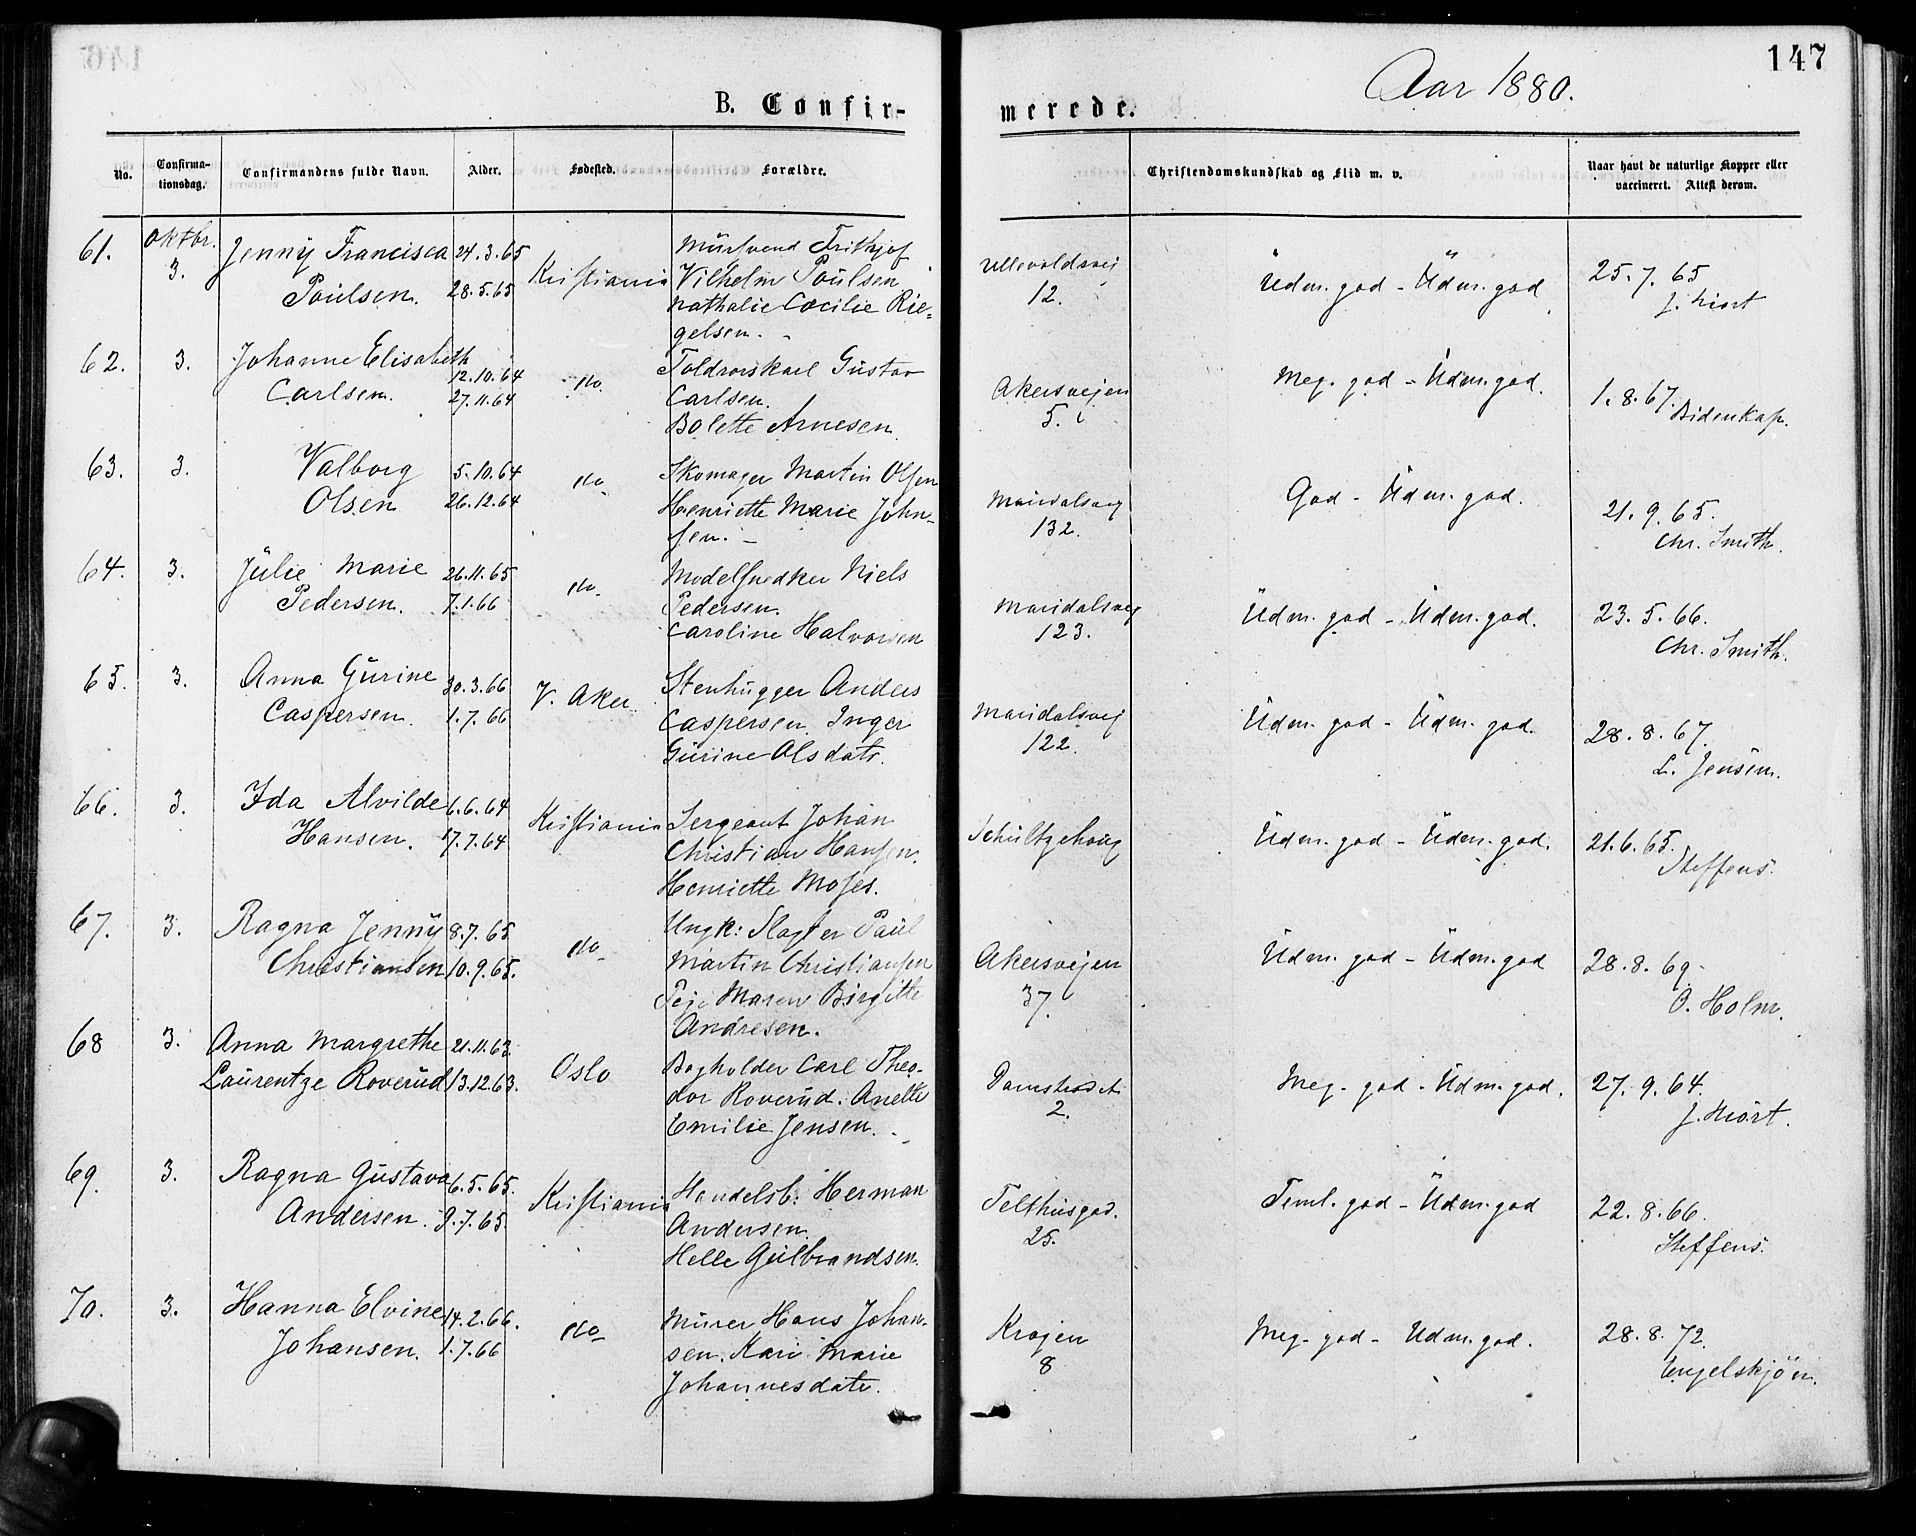 147
B. Confir-
merede.
Aar 1880.
No.
Confirma-
tionsdag.
Confirmandens fulde Navn.
Alder.
Fødested.
Forældre.
Christendomskundskab og Flid m. v.
Naar havt de naturlige Kopper eller
vaccineret. Attest derom.
61.
Oktbr.
3.
Jenny Francisca
Poulsen.
24.3.65
28.5.65
Kristiania
Mursvend Frithjof
Vilhelm Poulsen
Nathalie Cæcilie Rie=
gelsen.
Ullevoldsvej
12.
Udm. god - Udm. god
25.7.65
J. Hiort
62.
3.
Johanne Elisabeth
Carlsen.
12.10.64
27.11.64
do
Toldrorskarl Gustav
Carlsen.
Bolette Arnesen
Akersvejen
5.
Meg. god - Udm. god.
1.8.67.
Bidenkap.
63.
3.
Valborg
Olsen
5.10.64
26.12.64
do
Skomager Martin Olsen
Henriette Marie John-
sen. -
Maridalsvej
132.
God - Udm. god.
21.9.65.
Chr. Smith.
64.
3.
Julie Marie
Pedersen.
26.11.65
7.1.66
do
Modelsnedker Niels
Pedersen.
Caroline Halvorsen
Maridalsvej
123.
Udm. god - Udm. god.
23.5.66.
Chr. Smith.
65.
3.
Anna Gurine
Caspersen.
30.3.66
1.7.66
V. Aker
Stenhugger Anders
Caspersen. Inger
Gurine Olsdatr.
Maridalsvej
122.
Udm. god - Udm. god.
28.8.67.
L. Jensen.
66.
3.
Ida Alvilde
Hansen.
6.6.64
17.7.64
Kristiania
Sergeant Johan
Christian Hansen.
Henriette Moses.
Schultzehoug
Udm. god - Udm. god.
21.6.65.
Steffens.
67.
3.
Ragna Jenny
Christiansen
8.7.65
10.9.65.
do
Ungk: Slagter Paul
Martin Christiansen
Pige Maren Birgitte
Andresen.
Akersvejen
37.
Udm. god - Udm. god
28.8.69.
O. Holm.
68
3.
Anna Margrethe
Laurentze Roverud
21.11.63.
13.12.63.
Oslo
Bogholder Carl Theo-
dor Roverud. Anette
Emilie Jensen.
Damstredet
2.
Meg. god - Udm. god.
27.9.64.
J. Hiort.
69.
3.
Ragna Gustava
Andersen.
6.5.65.
9.7.65.
Kristiania
Handelsb: Herman
Andersen.
Helle Gulbrandsen.
Telthusgad.
25.
Teml. god - Udm. god
22.8.66.
Steffens.
70.
3.
Hanna Elvine
Johansen.
14.2.66.
1.7.66
do
Murer Hans Johan-
sen. Kari Marie
Johannesdatr.
Krogen
8
Meg. god - Udm. god.
28.8.72.
Engelskjøn.